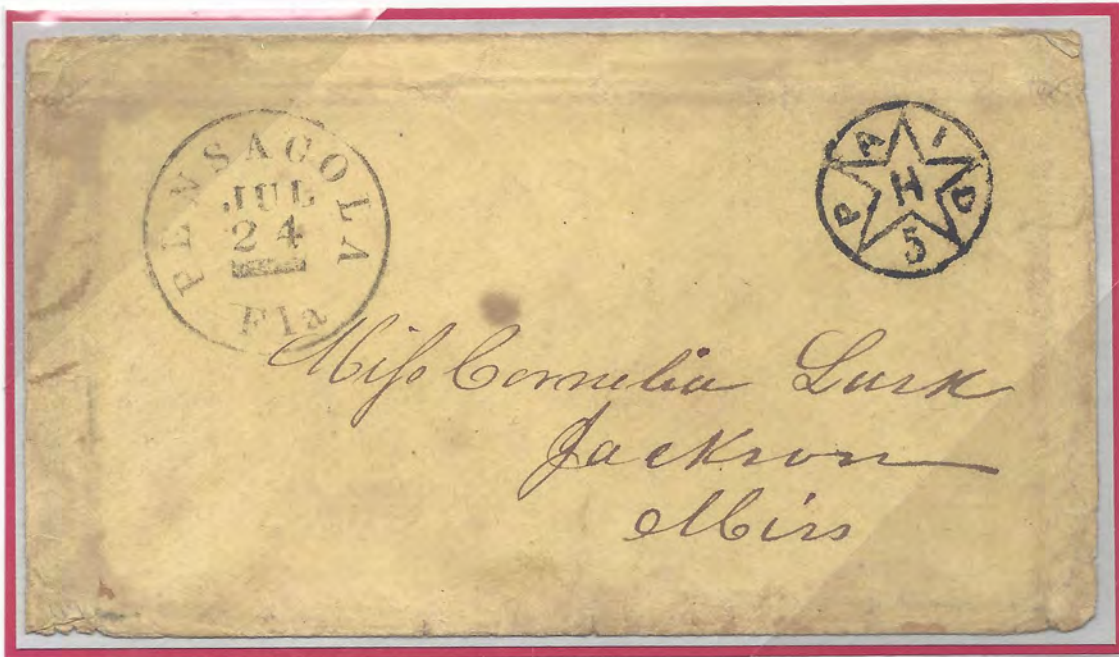 PENSACOLA
JUL
24
Fla
PAID
H
5
Miss Cornelia Lusk
Jackson
Miss